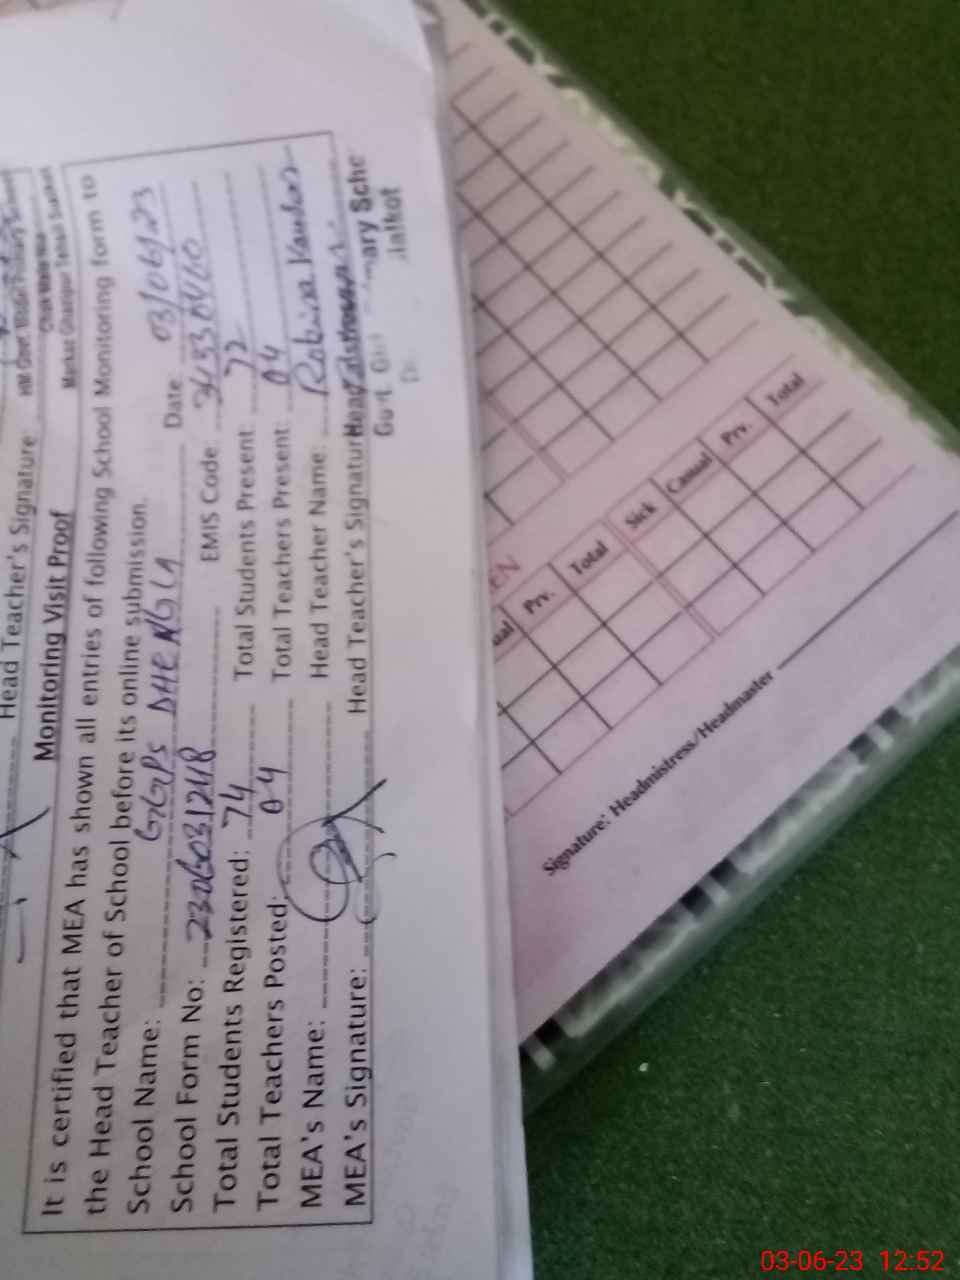 Head Teacher's Signature:
Monitoring Visit Proof
It is certified that MEA has shown all entries of following School Monitoring form to
the Head Teacher of School before its online submission.
School Name: GGPS DHENGLA Date: 03/06/23
School Form No: EMIS Code:
Total Students Registered: 74 Total Students Present: 72
Total Teachers Posted: 04 Total Teachers Present: 04
MEA's Name: Head Teacher Name: Robina Kauhar
MEA's Signature: Head Teacher's Signature:
ary Sch
ialkot
EN
Prv. Total Sick Casual Prv. Total
Signature: Headmistress/Headmaster
03-06-23 12:52